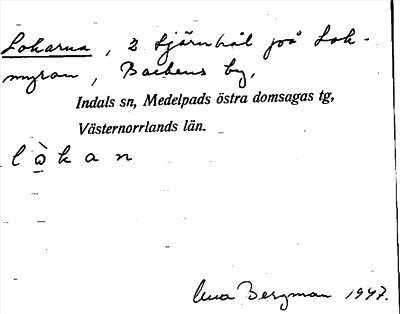 Lokarna, 2 tjärnhål på Lok-
myran, Backens by,
Indals sn, Medelpads östra domsagas tg,
Västernorrlands län.
lò̲kan
Bergman 1947.